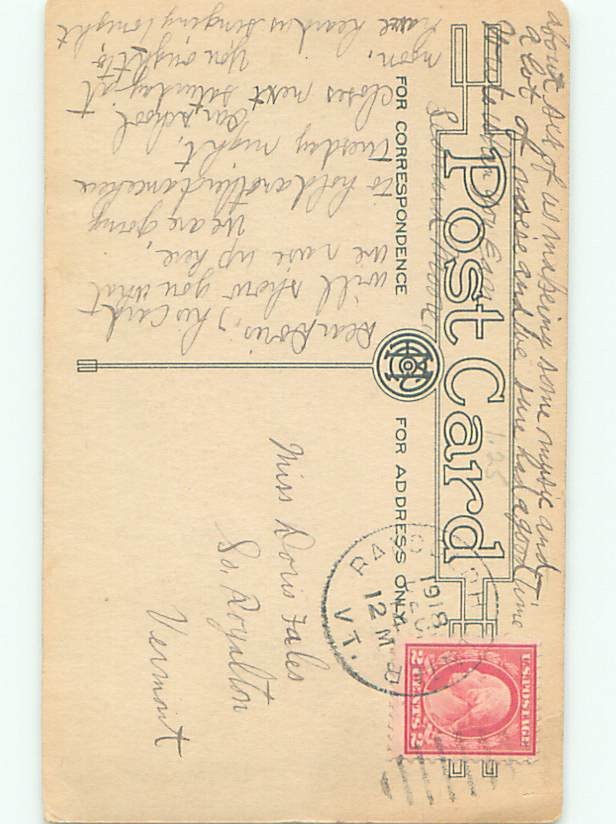 Post Card
FOR CORRESPONDENCE
FOR ADDRESS ONLY
Dear Doris, This card
will show you what
we raise up here,
We are going
to hold another dance here
Tuesday night,
Our school
closes next Saturday at
noon.
You ought to
have heard us singing tonight
about six of us making some music and
a lot of and be sure had a good time
1.25
Miss Doris Fales
So. Royalton
Vermont
RANDOLPH
1918
12 M
VT.
U.S. POSTAGE
2 CENTS 2